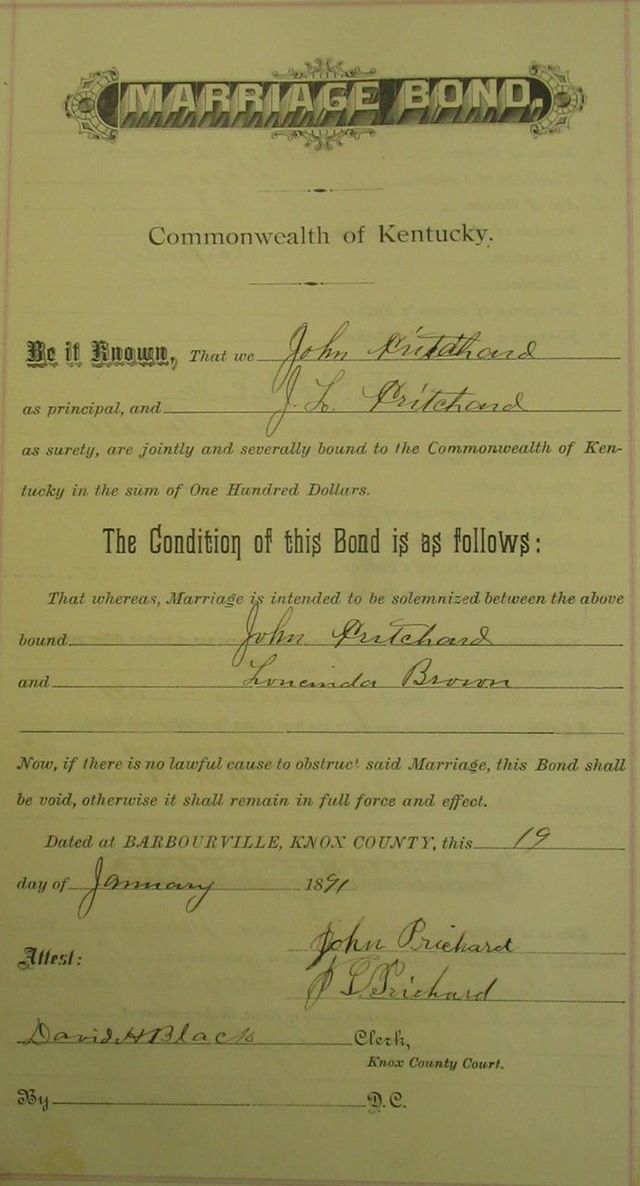 MARRIAGE BOND.
Commonwealth of Kentucky.
Be it Known, That we John Pritchard
as principal, and J. L. Pritchard
as surety, are jointly and severally bound to the Commonwealth of Ken-
tucky in the sum of One Hundred Dollars.
The Condition of this Bond is as follows:
That whereas, Marriage is intended to be solemnized between the above
bound John Pritchard
and Brown
Now, if there is no lawful cause to obstruct said Marriage, this Bond shall
be void, otherwise it shall remain in full force and effect.
Dated at BARBOURVILLE, KNOX COUNTY, this 19
day of January 1891
John Prichard
Attest:
J L Prichard
David H Black Clerk,
Knox County Court.
By D.C.